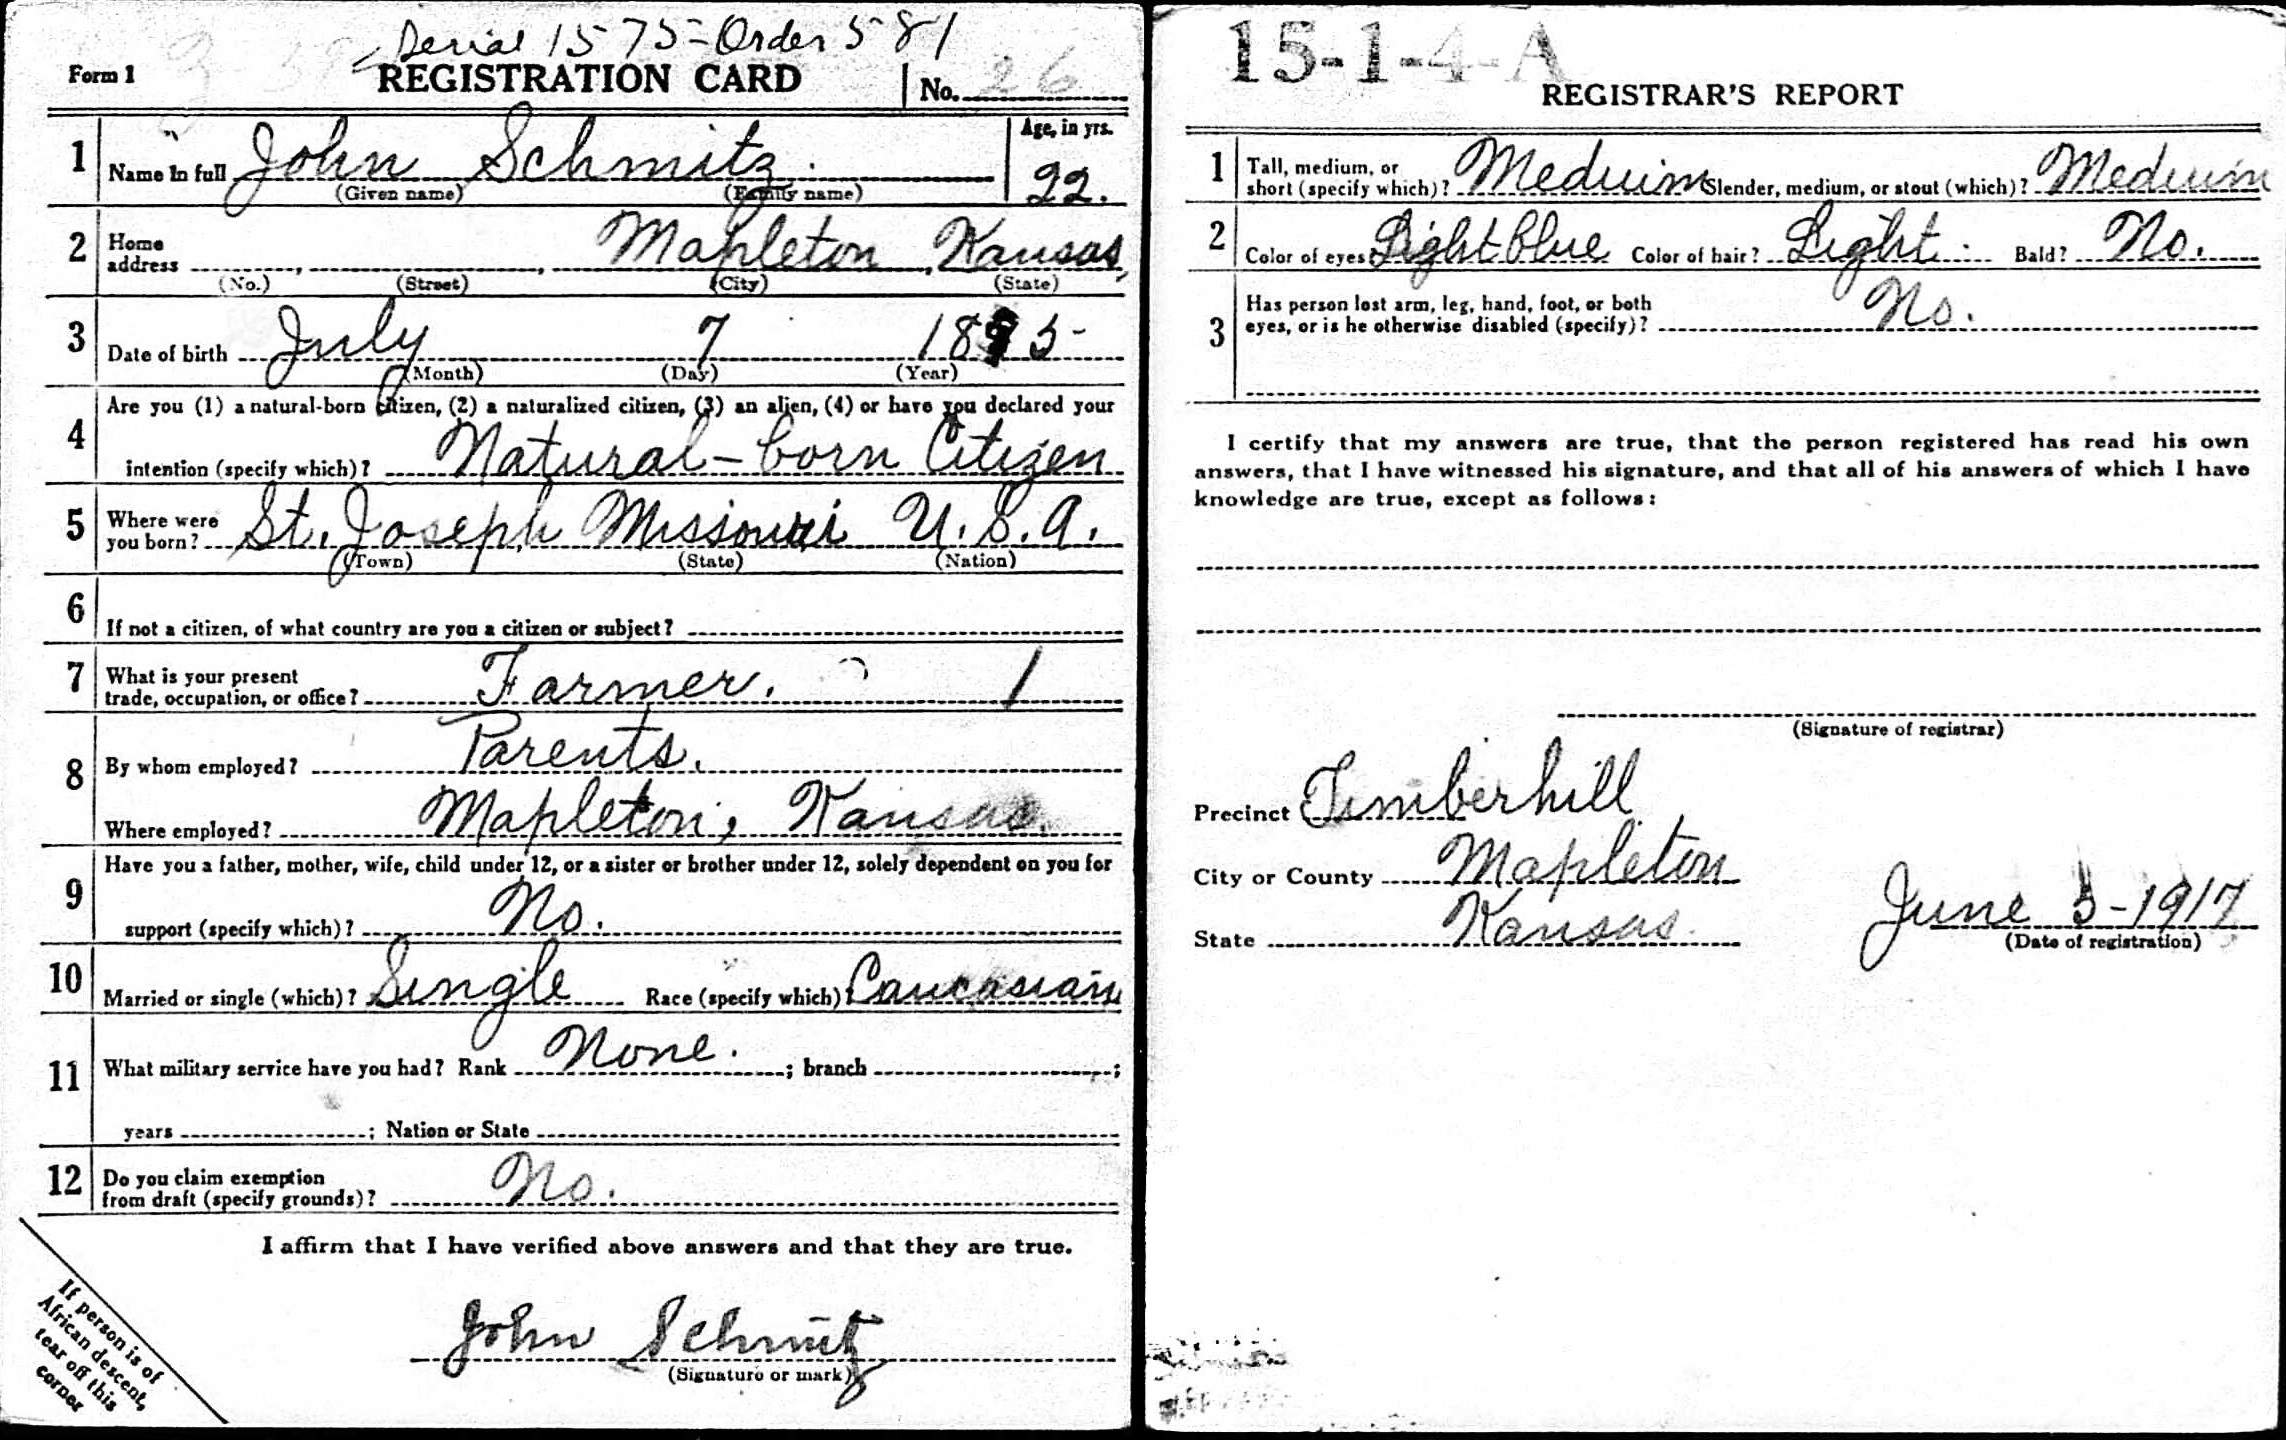 Serial 1575 - Order 581
Form 1 REGISTRATION CARD No. 26
1 Name in full John Schmitz. Age, in yrs. 22.
(Given name) (Family name)
2 Home address Mapleton, Kansas,
(No.) (Street) (City) (State)
3 Date of birth July 7 1895-
(Month) (Day) (Year)
4 Are you (1) a natural-born citizen, (2) a naturalized citizen, (3) an alien, (4) or have you declared your
intention (specify which)? Natural-born Citizen
5 Where were you born? St. Joseph Missouri U.S.A.
(Town) (State) (Nation)
6 If not a citizen, of what country are you a citizen or subject?
7 What is your present trade, occupation, or office? Farmer. 1
8 By whom employed? Parents.
Where employed? Mapleton, Kansas.
9 Have you a father, mother, wife, child under 12, or a sister or brother under 12, solely dependent on you for
support (specify which)? No.
10 Married or single (which)? Single Race (specify which)? Caucasian
11 What military service have you had? Rank None. ; branch ;
years ; Nation or State
12 Do you claim exemption from draft (specify grounds)? No.
I affirm that I have verified above answers and that they are true.
John Schmitz
(Signature or mark)
If person is of
African descent,
tear off this
corner
15-1-4-A
REGISTRAR'S REPORT
1 Tall, medium, or short (specify which)? Meduim Slender, medium, or stout (which)? Meduim
2 Color of eyes? Light blue Color of hair? Light. Bald? No.
3 Has person lost arm, leg, hand, foot, or both
eyes, or is he otherwise disabled (specify)? No.
I certify that my answers are true, that the person registered has read his own
answers, that I have witnessed his signature, and that all of his answers of which I have
knowledge are true, except as follows:
(Signature of registrar)
Precinct Timberhill
City or County Mapleton
State Kansas. June 5-1917
(Date of registration)